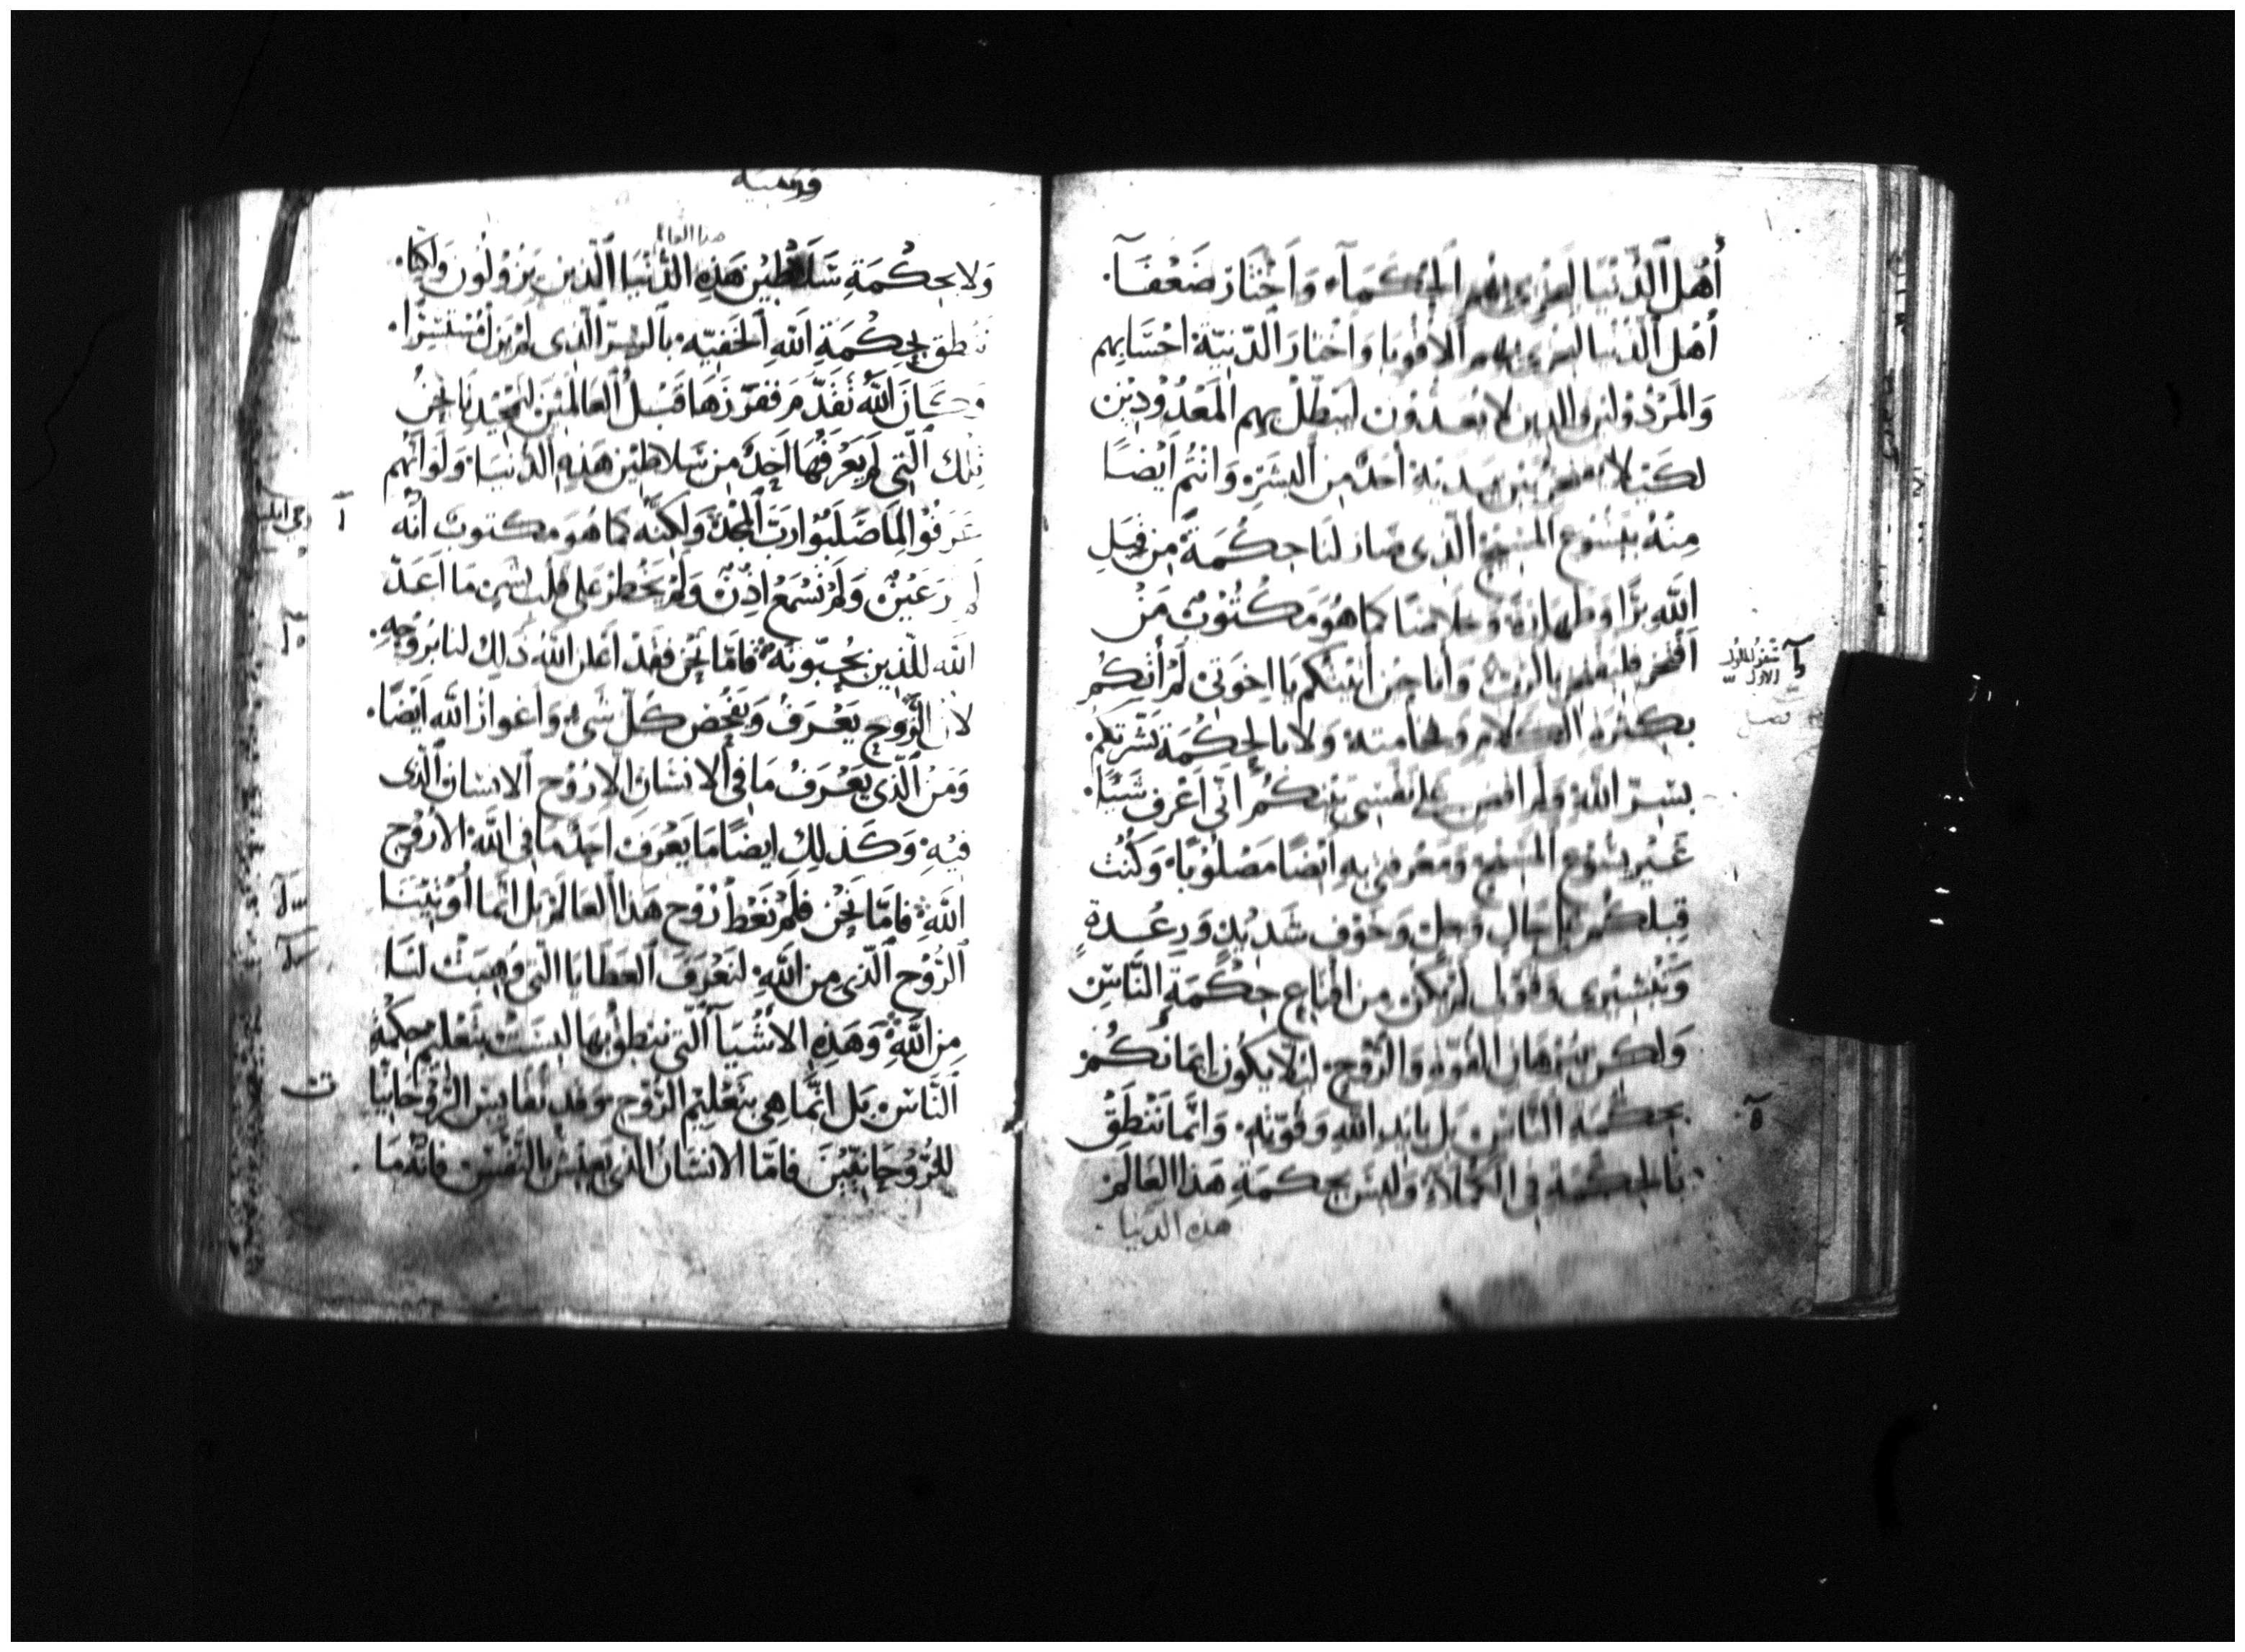 أهل الدنيا ليخزى بهم الحكمآء واختار ضعفآ
أهل الدنيا ليخزى بهم الاقويا واختار الدنية احسابهم
والمرذولين والذين لا يعدون ليبطل بهم المعدودين
لكيلا يفتخر بين يديه أحد من البشر وانتم أيضا
منه بيسوع المسيح الذى صار لنا حكمة من قبل
الله برا وطهارة وخلاصا كما هو مكتوب من
افتخر فليفتخر بالرب وأنا حين أتيتكم يا اخوتى لم أتكم
بكثرة الكلام ولا بالحكمة بشرتكم
بسر الله ولم اقض على نفسى بينكم انى أعرف شيئا
غير يسوع المسيح ومعرفتى به أيضا مصلوبا وكنت
قبلكم بحال وجل وخوف شديد ورعدة
وتبشيرى وقولى لم يكن من اقناع حكمة الناس
ولكن ببرهان القوة والروح ليلا يكون ايمانكم
بحكمة الناس بل بايد الله وقوته وانما ننطق
بالحكمة فى الكملاء وليس بحكمة هذا العالم
هذه الدنيا
سفر الملوك
الاول
قرنتية
هذا العالم
ولا بحكمة سلاطين هذه الدنيا الذين يزولون ولكنا
ننطق بحكمة الله الخفية بالسر الذى لم يزل مستترا
وكان الله تقدم ففرزها قبل العالمين لتمجيدنا نحن
تلك التى لم يعرفها أحد من سلاطين هذه الدنيا ولو انهم
عرفوا لما صلبوا رب المجد ولكنه كما هو مكتوب أنه
لم تر عين ولم تسمع اذن ولم يخطر على قلب بشر ما اعد
الله للذين يحبونه فاما نحن فقد أعلن الله ذلك لنا بروحه
لان الروح يعرف ويفحض كل شىء واغوار الله أيضا
ومن الذى يعرف ما فى الانسان الا روح الانسان الذى
فيه وكذلك ايضا ما يعرف احد ما فى الله الا روح
الله فاما نحن فلم نعط روح هذا العالم بل انما أوتينا
الروح الذى من الله لنعرف العطايا التى وهبت لنا
من الله وهذه الاشيآ التى ننطق بها ليست بتعليم حكمة
الناس بل انما هى بتعليم الروح وقد نقايس الروحانيا
للروحانيين فاما الانسان الذى يعيش بالنفس فانه ما